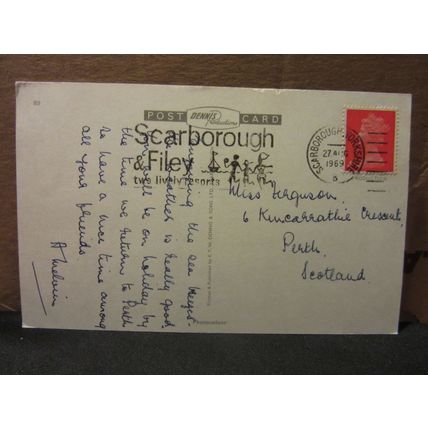 POST DENNIS Productions CARD
Scarborough
& Filey
two lively resorts
SCARBOROUGH YORKSHIRE
27 AUG
1969
B
Enjoying the sea breezes.
The weather is really good.
You will be on holiday by
the time we return to Perth
so have a nice time among
all your friends.
A Melvin
Miss Ferguson,
6 Kincarrathie Crescent,
Perth,
Scotland.
Printed & Published by E. T. W. DENNIS & SONS LTD.